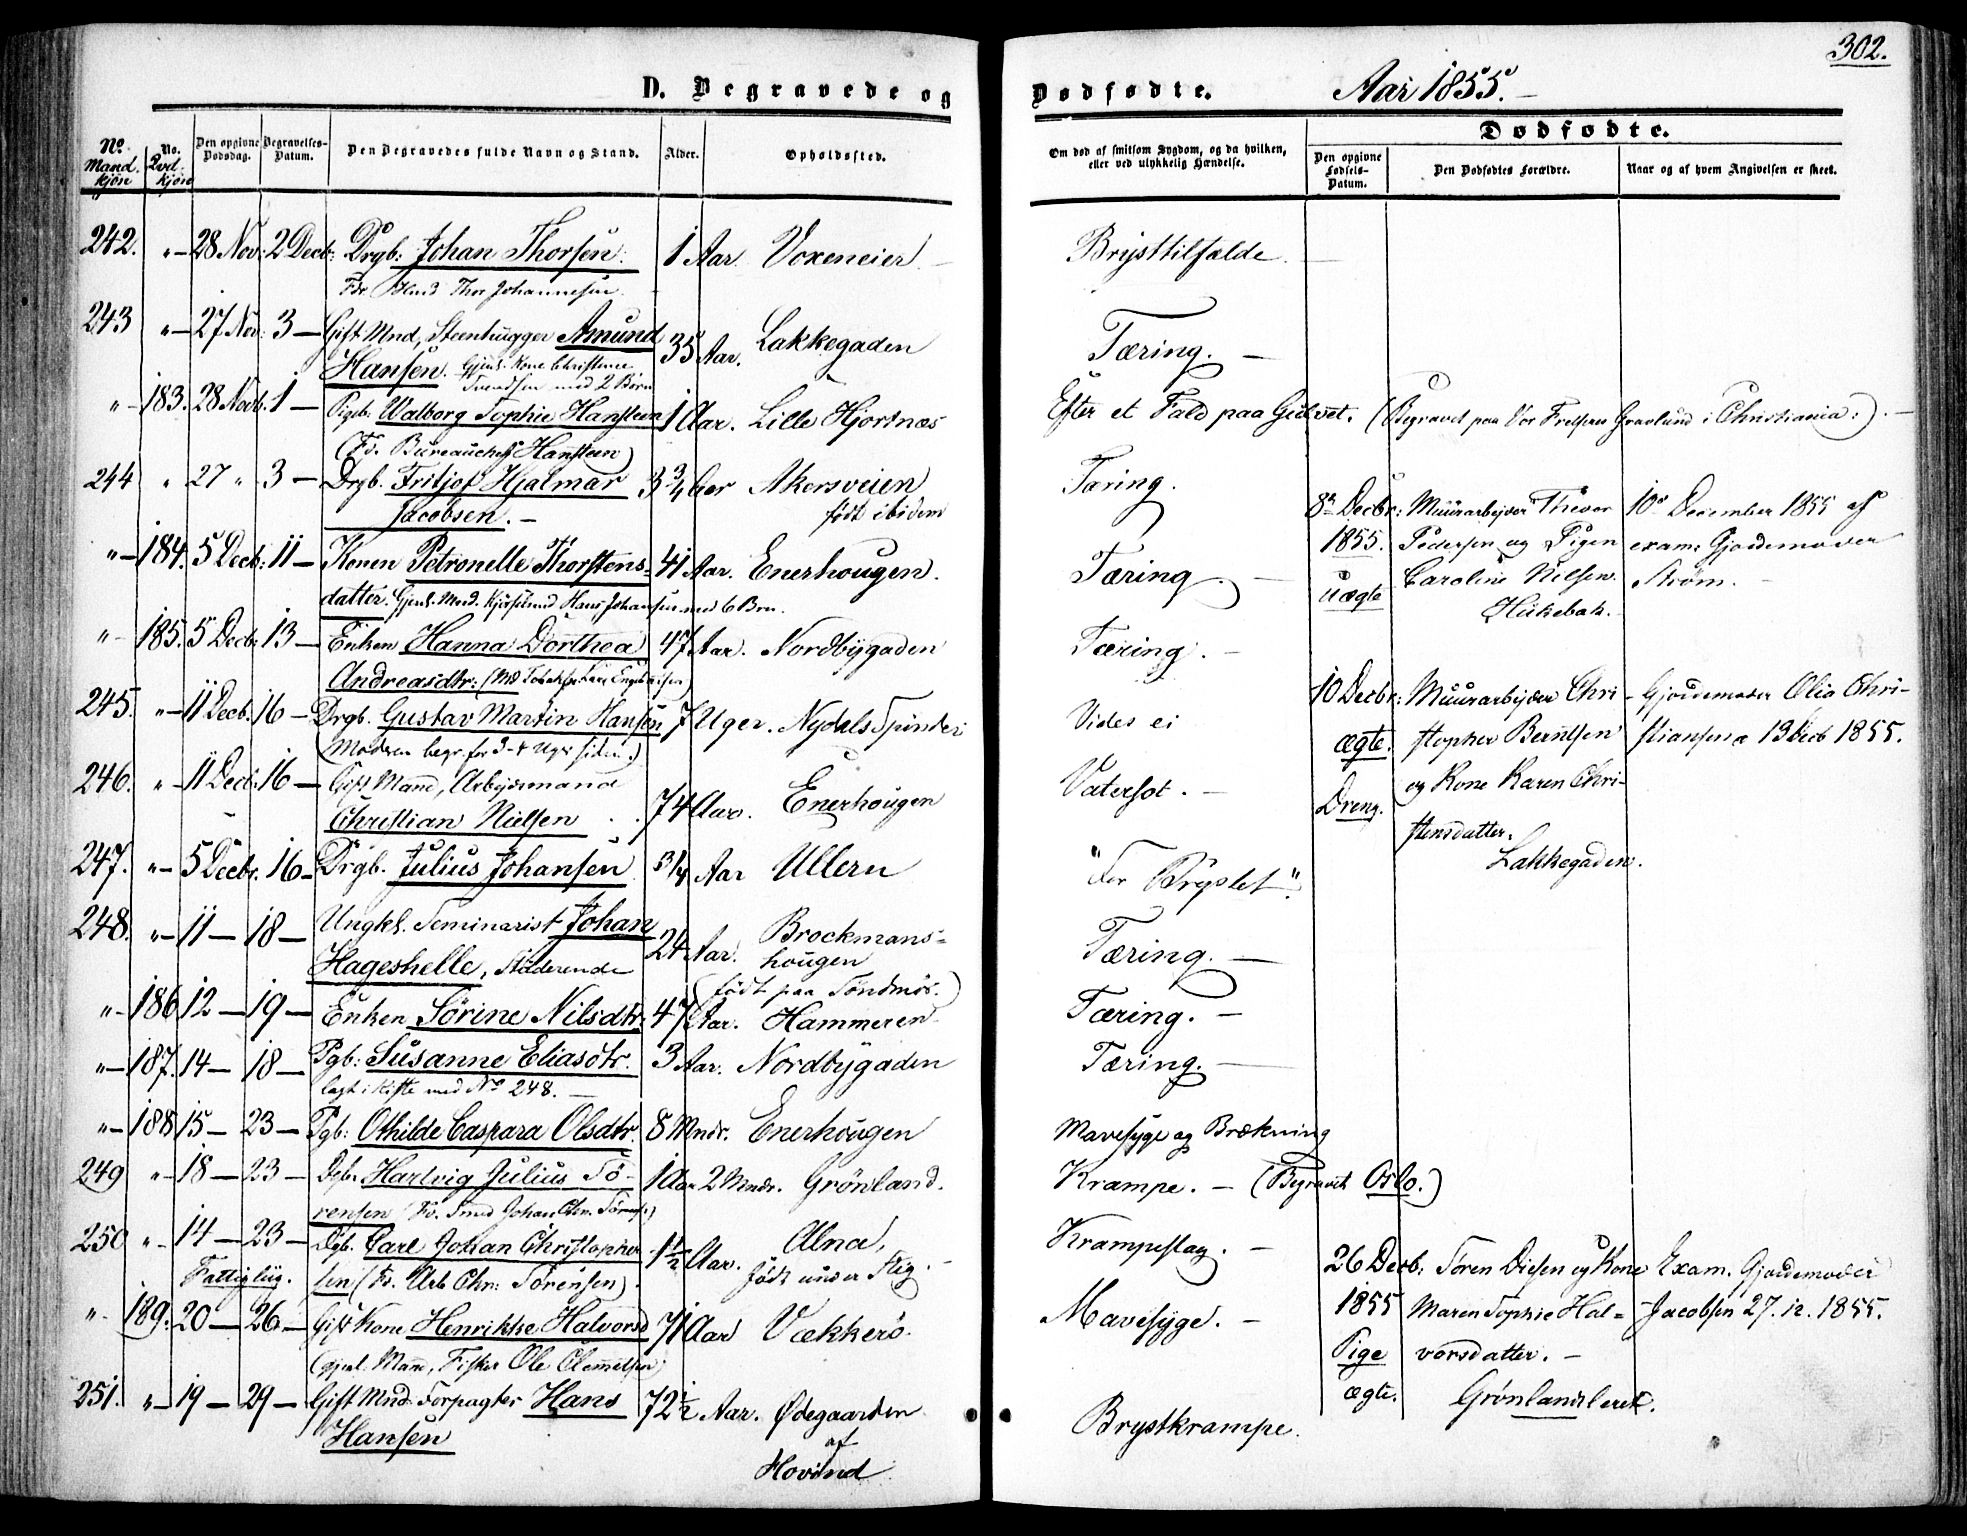 302.
D. Begravede og Dødfødte. Aar 1855.
No. Mand.kjøn
No. Qvd.kjøn
Den opgivne Dødsdag.
Begravelses-Datum.
Den Begravedes fulde Navn og Stand.
Alder.
Opholdssted.
Om død af smitsom Sygdom, og da hvilken, eller ved ulykkelig Hændelse.
Dødfødte.
Den opgivne Fødsels-Datum.
Den Dødfødtes Forældre.
Naar og af hvem Angivelsen er skeet.
242. „ – 28 Nov: 2 Decb: Drgb: Johan Thorsen. 1 Aar. Voxeneier. – Brysttilfælde. –
Fdr Thor Johannesen.
243 „ – 27 Nov: 3 – Gift Mnd, Steenhugger Amund 35 Aar. Lakkegaden Tæring. –
Hansen. Gjenl. Kone Christence
Svendsen med 2 Børn
„ – 183. 28 Novb. 1 – Pigeb: Walborg Sophie Hansteen 1 Aar. Lille Hjortnæs Efter et Fald paa Gulvet. (Begravet paa Vor Frelsers Gravlund i Christiania:) –
(Fr. Bureauchef Hansteen)
244 „ 27 „ 3 – Drgb. Fritjof Hjalmar 3 3/4 Aar Akersveien Tæring.
Jacobsen. – født ibidem
„ – 184. 5 Decb: 11 – Konen Petronelle Thorstens- 41 Aar. Enerhougen. Tæring. –
datter. Gjenl. Mnd. Kjørsvend Hans Johansen med 6 Brn.
„ – 185. 5 Decb: 13 – Enken Hanna Dorthea 47 Aar. Nordbygaden Tæring. –
Andreasdtr:
245. „ – 11 Decb. 16 – Drgb. Gustav Martin Hansen 7 Uger. Nydals Spinderi Vides ei
(Modren begr. for 3-4 Uger siden.)
246. „ – 11 Decb: 16 – Gift Mand, Arbeidsmand 74 Aar. Enerhougen Vatersot. –
Christian Nielsen
247. „ – 5 Decbr. 16 – Drgb. Julius Johansen 3/4 Aar Ullern "For Brystet".
248. „ – 11 – 18 – Ungkl. Seminarist Johan 24 Aar. Brockmans- Tæring. –
Hageshelle, Studerende hougen
(født paa Søndmør.)
„ – 186 12 – 19 – Enken Sørine Nilsdtr. 47 Aar. Hammeren Tæring. –
„ – 187. 14 – 18 – Pgb: Susanne Eliasdtr. 3 Aar. Nordbygaden Tæring. –
lagt i Kiste med No 248. –
„ – 188 15 – 23 – Pgb: Othilde Caspara Olsdtr. 8 Mndr. Enerhougen Mavesyge og Brækning
249 „ – 18 – 23 – Dgb: Hartvig Julius Sø- 1 Aar 2 Mndr. Grønland. Krampe. – (Begravet Oslo.)
rensen (Fr. Smed Johan Chr. Sørens:)
250 „ – 14 – 23 – Dgb. Carl Johan Christopher- 1 1/2 Aar. Alna, Krampeslag. –
Fattiglig. sen (Fr. Arb Chr: Sørensen). født under Flyg. –
„ 189. 20 – 26 – Gift Kone Henrikke Halvorsd 71 Aar Vækkerø. Mavesyge. –
(gjenl. Mand, Fisker Ole Clemetsen)
251. „ – 19 – 29 – Gift Mnd. Forpagter Hans 72 1/2 Aar. Ødegaarden Brystkrampe.
Hansen af
Hovind
8de Decbr: Muurarbeider Thever 10de December 1855 af
1855. Pedersen og Pigen exam: Gjordemoder
uægte Caroline Nilsen. Strøm. –
Hukebak.
10 Decbr: Muurarbeider Chri- Gjordemoder Olia Chri-
ægte. stopher Berntsen stiansen a 13 Decb 1855.
Dreng. og Kone Karen Chri-
stensdatter.
Lakkegaden.
26 Decb: Søren Diesen og Kone Exam. Gjordemoder
1855 Maren Sophie Hal- Jacobsen 27.12.1855.
Pige vorsdatter. –
ægte. Grønlandsleret.